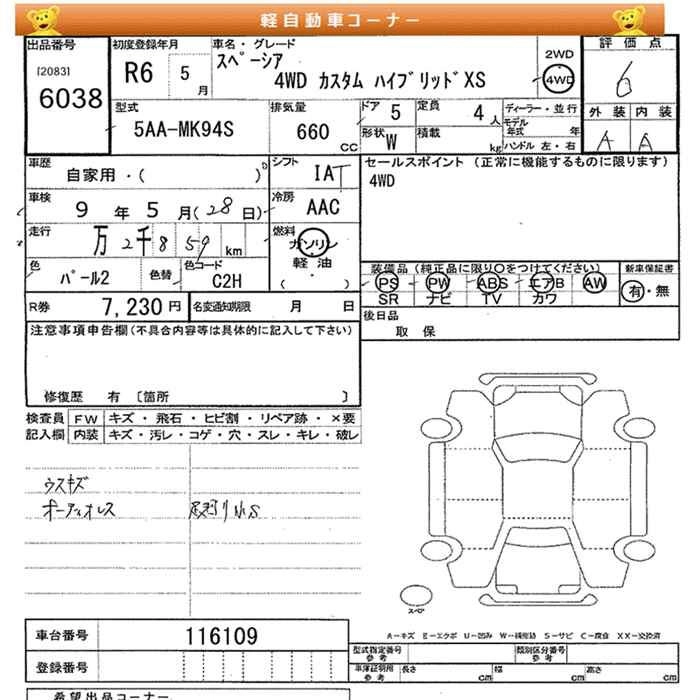 軽自動車コーナー
出品番号 初度登録年月 車名・グレード 評価点
[2083] 6038
R6 5月
スペーシア
4WD カスタム ハイブリッドXS
2WD
4WD
6
外装 内装
A A
型式 5AA-MK94S
排気量 660 CC
ドア 5 定員 4人
形状 W 積載 kg
ディーラー・並行
モデル年式 年
ハンドル 左・右
車歴 自家用・( )
シフト IAT
セールスポイント (正常に機能するものに限ります)
4WD
車検 9年5月(28日)
冷房 AAC
走行 万2千859 km
燃料 ガソリン
軽油
( )
色 パール2 色替 色コード C2H
装備品 (純正品に限り○をつけてください) 新車保証書
PS PW ABS エアB AW 有・無
SR ナビ TV カワ
R券 7,230円 名変通知期限 月 日
後日品
取 保
注意事項申告欄(不具合内容等は具体的に記入して下さい)
修復歴 有 [箇所 ]
検査員 FW キズ・飛石・ヒビ割・リペア跡・×要
記入欄 内装 キズ・汚レ・コゲ・穴・スレ・キレ・破レ
ウスキズ
オーディオレス
スペア
A-キズ E-エクボ U-凹み W-補修跡 S-サビ C-腐食 XX-交換済
車台番号 116109
型式指定番号 参考 類別区分番号 参考
登録番号
車庫証明用 参考 長さ cm 幅 cm 高さ cm
希望出品コーナー